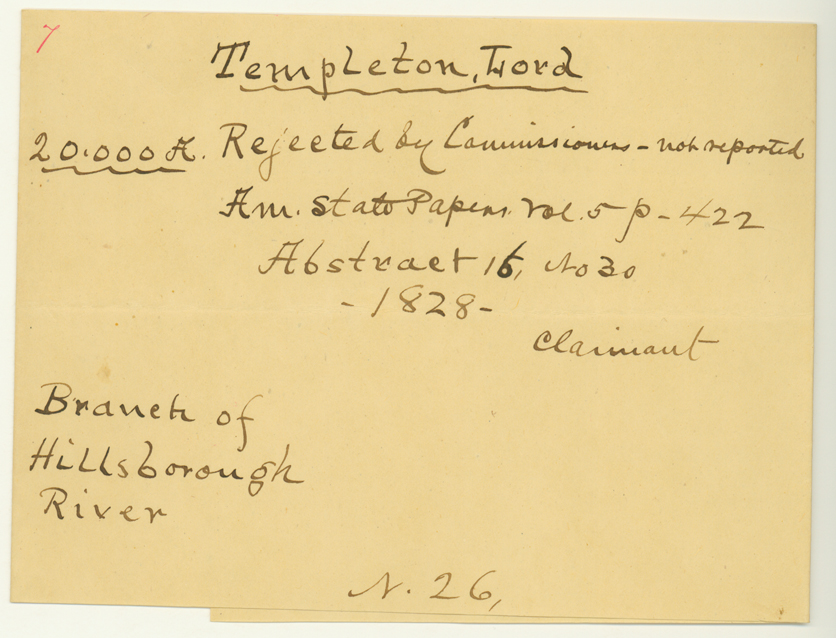 7
Templeton, Lord
20.000 A. Rejected by Commissioners - not reported
Am. State Papers. Vol. 5 p - 422
Abstract 16, No 30
- 1828 -
Claimant
Branch of
Hillsborough
River
N. 26,